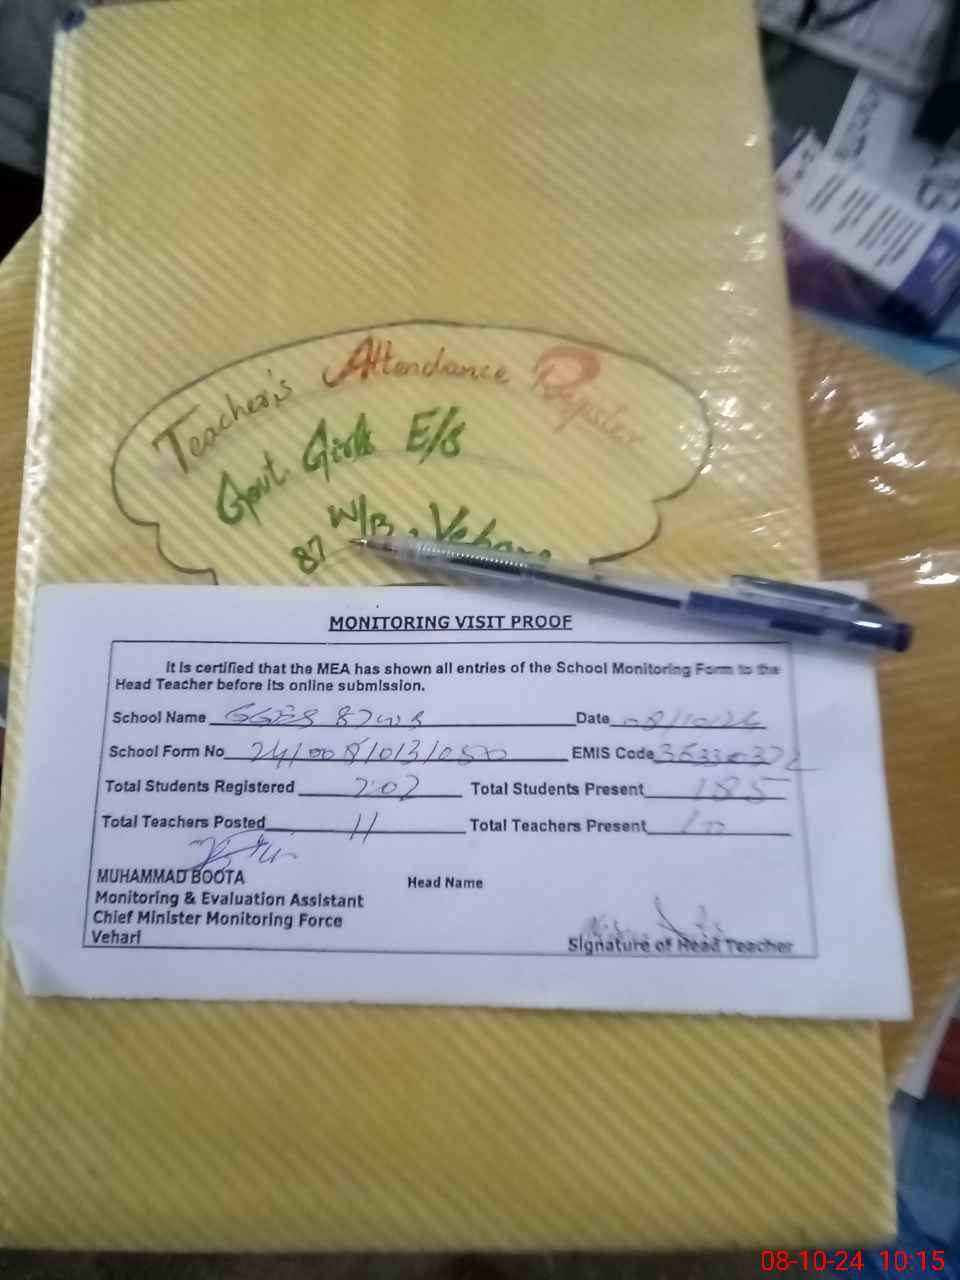 Teacher's Attendance Register
Govt. Girls E/S
87 W/B, Vehari
MONITORING VISIT PROOF
It is certified that the MEA has shown all entries of the School Monitoring Form to the
Head Teacher before its online submission.
School Name GGES 87WB Date 08/10/24
School Form No 24/008/013/050 EMIS Code
Total Students Registered 202 Total Students Present 185
Total Teachers Posted 11 Total Teachers Present 10
MUHAMMAD BOOTA
Head Name
Monitoring & Evaluation Assistant
Chief Minister Monitoring Force
Vehari
Signature of Head Teacher
08-10-24 10:15